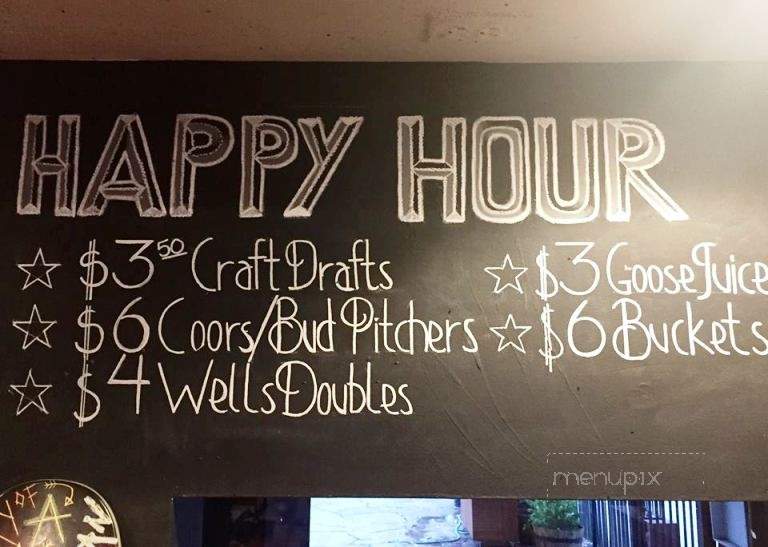 HAPPY HOUR
$3.50 Craft Drafts
$6 Coors/Bud Pitchers
$4 Wells Doubles
$3 Goose Juice
$6 Buckets
menupix